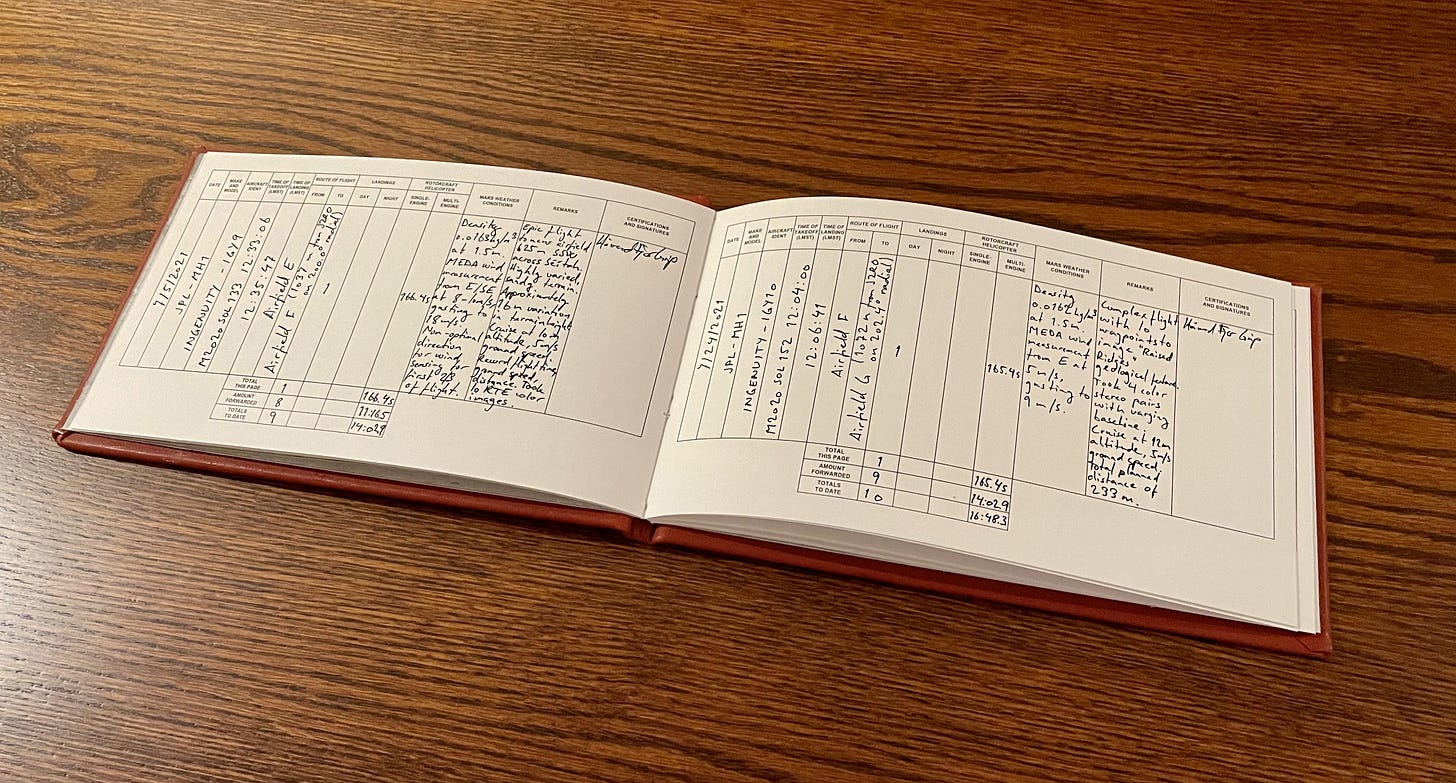 DATE
MAKE AND MODEL
AIRCRAFT IDENT
TIME OF TAKEOFF (LMST)
TIME OF LANDING (LMST)
ROUTE OF FLIGHT
FROM
TO
LANDINGS
DAY
NIGHT
ROTORCRAFT HELICOPTER
SINGLE-ENGINE
MULTI-ENGINE
MARS WEATHER CONDITIONS
REMARKS
CERTIFICATIONS AND SIGNATURES
7/5/2021
JPL-MH1
INGENUITY - IGY9
M2020 SOL 133 12:33:06
12:35:47
Airfield E
Airfield F (1037 m from JZRO
on 200.0° radial)
1
166.4s
Density
0.0163kg/m³
at 1.5m.
MEDA wind
measurement
from E/SE
at 8-
gusting to
18 m/s.
Non optimal
direction
for wind
sensing for
first
of flight.
Epic flight
to new airfield,
625m SSW,
across Séítah.
Highly varied,
sandy terrain.
Approximately
variation
in terrain height
Cruise at 10m
altitude, 5m/s
ground speed.
Record flight time,
ground speed,
distance. Took
10 RTE color
images.
Håvard Fjær Grip
TOTAL THIS PAGE 1 166.4s
AMOUNT FORWARDED 8 11:16.5
TOTALS TO DATE 9 14:02.9
DATE
MAKE AND MODEL
AIRCRAFT IDENT
TIME OF TAKEOFF (LMST)
TIME OF LANDING (LMST)
ROUTE OF FLIGHT
FROM
TO
LANDINGS
DAY
NIGHT
ROTORCRAFT HELICOPTER
SINGLE-ENGINE
MULTI-ENGINE
MARS WEATHER CONDITIONS
REMARKS
CERTIFICATIONS AND SIGNATURES
7/24/2021
JPL-MH1
INGENUITY - IGY10
M2020 SOL 152 12:04:00
12:06:41
Airfield F
Airfield G (1072 m from JZRO
on 202.4° radial)
1
165.4s
Density
0.0162 kg/m³
at 1.5m.
MEDA wind
measurement
from E at
5 m/s,
gusting to
9 m/s.
Complex flight
with 10
waypoints to
image, Raised
Ridges
geological feature.
Took 4 color
stereo pairs
with varying
baseline.
Cruise at 12m
altitude, 5m/s
ground speed,
total planned
distance of
233 m.
Håvard Fjær Grip
TOTAL THIS PAGE 1 165.4s
AMOUNT FORWARDED 9 14:02.9
TOTALS TO DATE 10 16:48.3